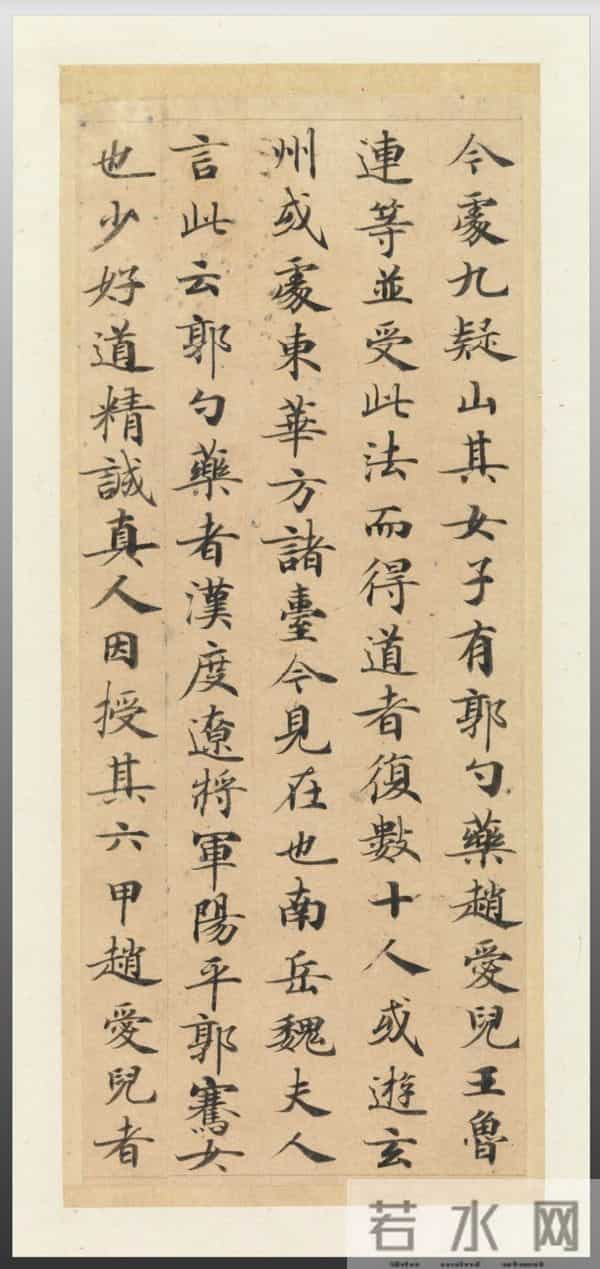 今處九疑山其女子有郭勺藥趙愛兒王魯
連等並受此法而得道者復數十人或遊玄
州或處東華方諸臺今見在也南岳魏夫人
言此云郭勺藥者漢度遼將軍陽平郭騫女
也少好道精誠真人因授其六甲趙愛兒者
若水网